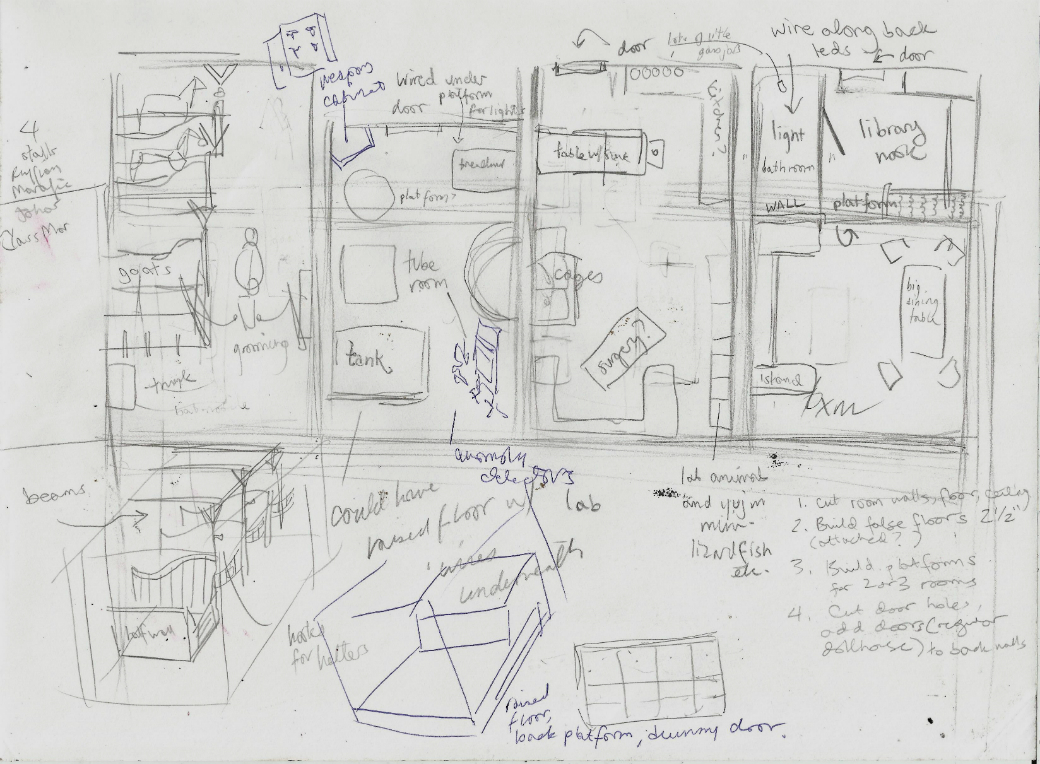 weapons
cabinet
wired under
platform
for lights
door
door
lots of little
wire along back
leds
door
4
stalls
goats
grooming
trunk
treadmill
platform?
tube
room
tank
table w/sink
cages
surgery?
light
bathroom
WALL
library
nook
platform
big
dining
table
island
anomaly
detectors
lab
lab animals
and
mini-
lizardfish
etc.
beams
half wall
hooks
for halters
could have
raised floor w/
wires
underneath
raised
floor,
back platform, dummy door.
1. Cut room walls, floor, ceiling
2. Build false floors 2 1/2"
(attached?)
3. Build platforms
for 2 or 3 rooms
4. Cut door holes,
add doors (regular
dollhouse) to back walls